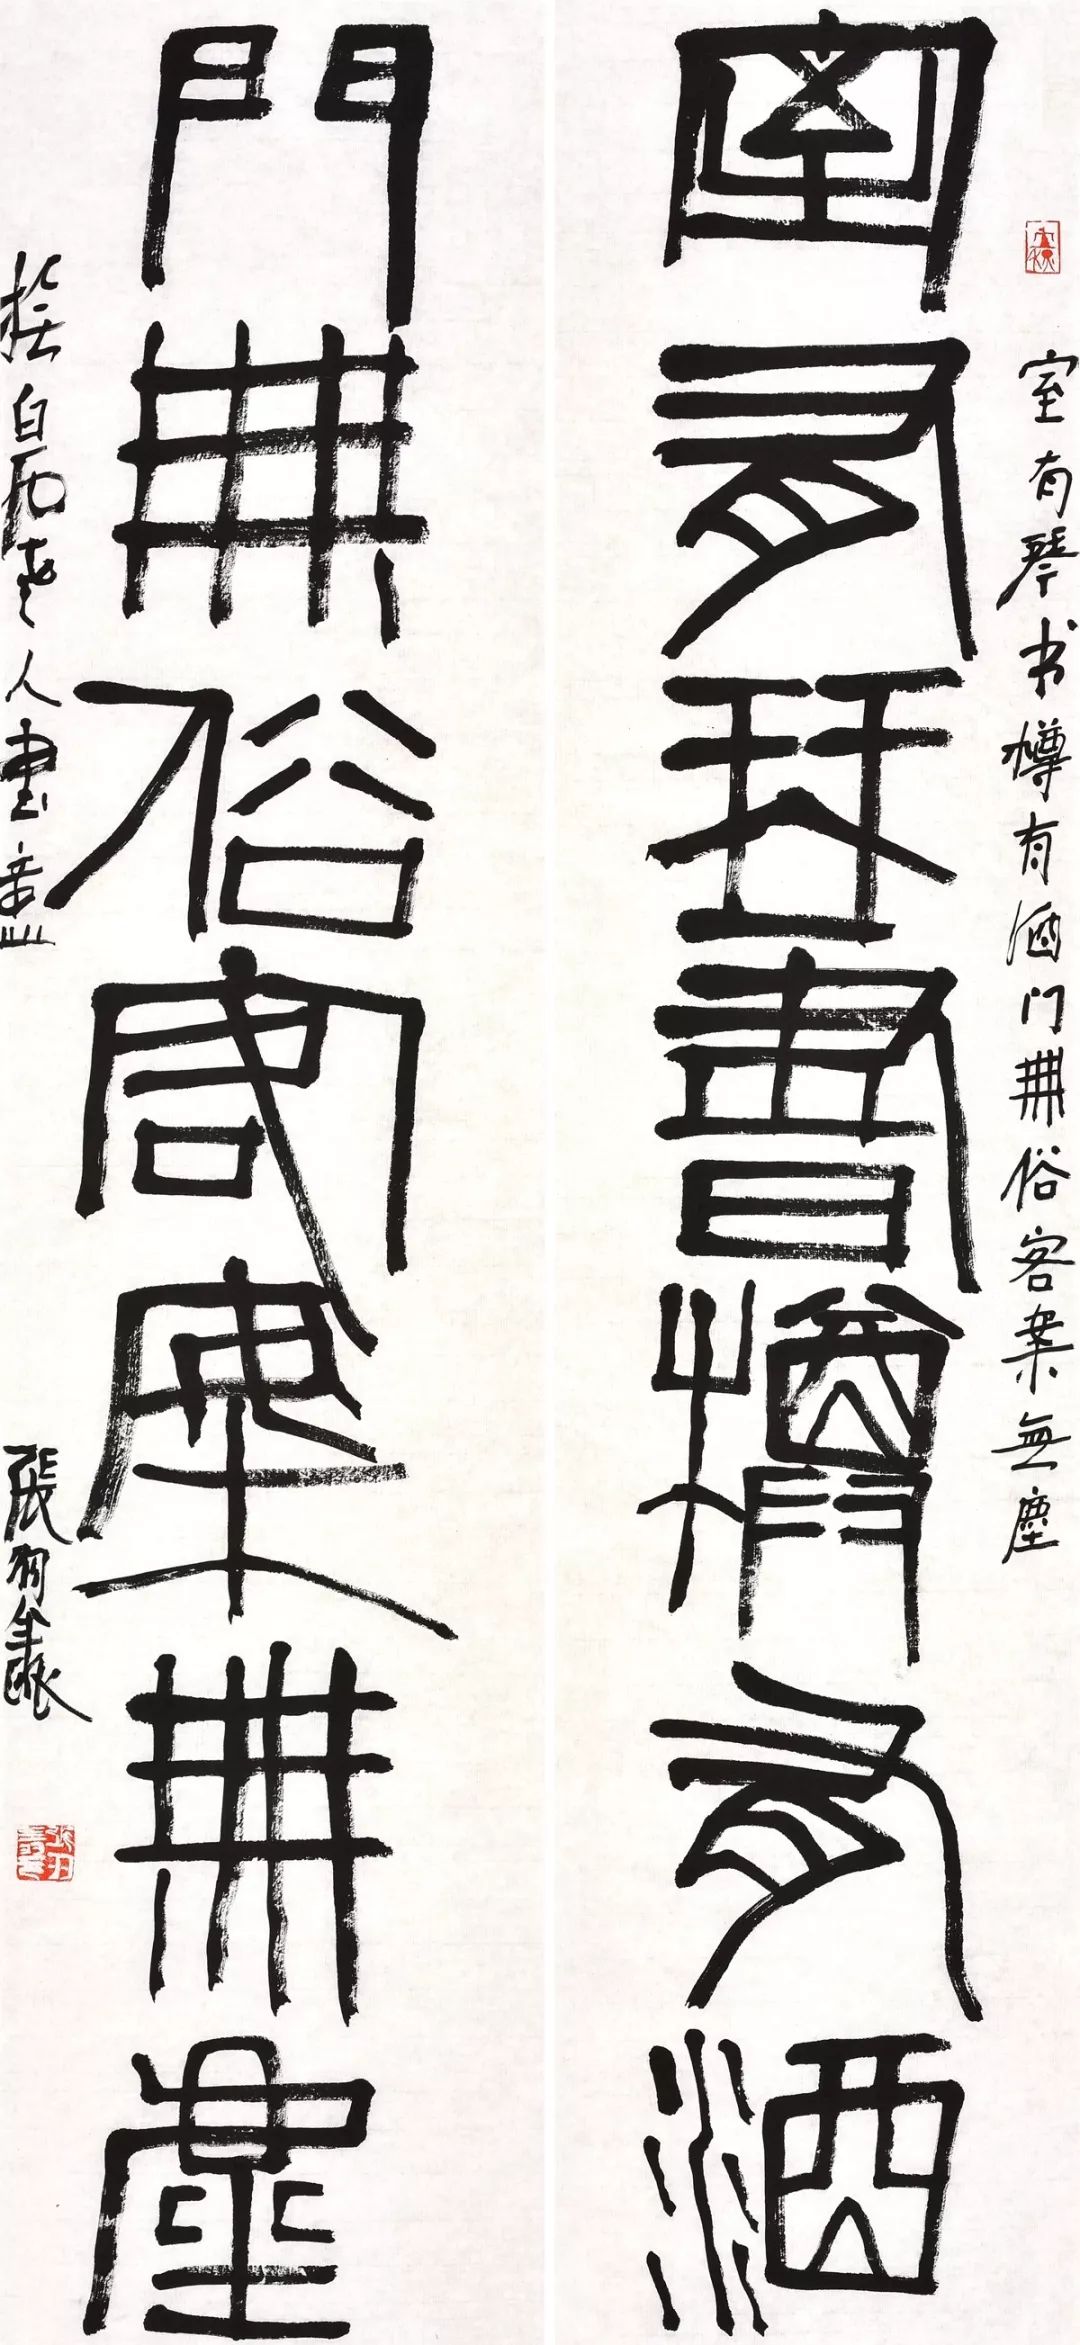 室有琴书樽有酒门無俗客案無塵
室有琴書樽有酒
門無俗客案無塵
白石老人畫意
張羽